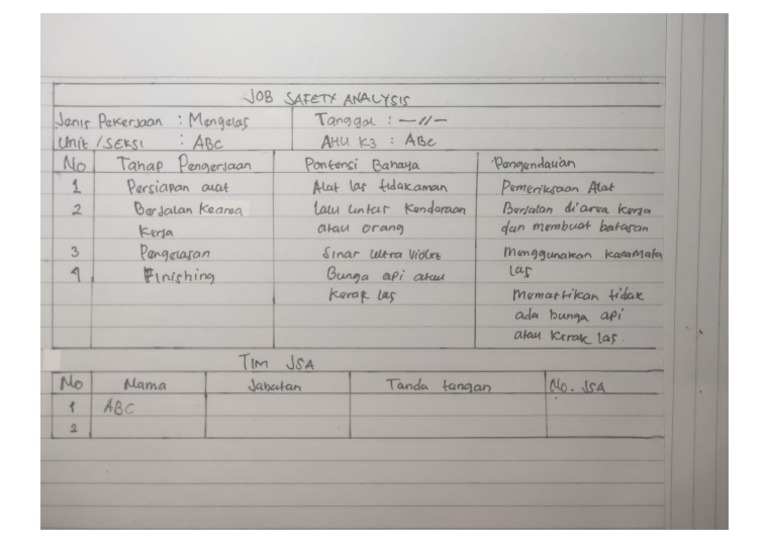 JOB SAFETY ANALYSIS
Jenis Pekerjaan : Mengelas Tanggal : — // —
Unit / SEKSI : ABC AHLI K3 : ABC
No Tahap Pengerjaan Pontensi Bahaya Pengendalian
1 Persiapan alat Alat las tidakaman Pemeriksaan Alat
2 Berjalan Kearea Lalu lintas Kendaraan Berjalan diarea kerja
Kerja atau orang dan membuat batasan
3 Pengelasan Sinar ultra Violet Menggunakan kacamata
4 Finishing Bunga api atau las
kerak las Memastikan tidak
ada bunga api
atau kerak las.
TIM JSA
No Nama Jabatan Tanda tangan No. JSA
1 ABC
2